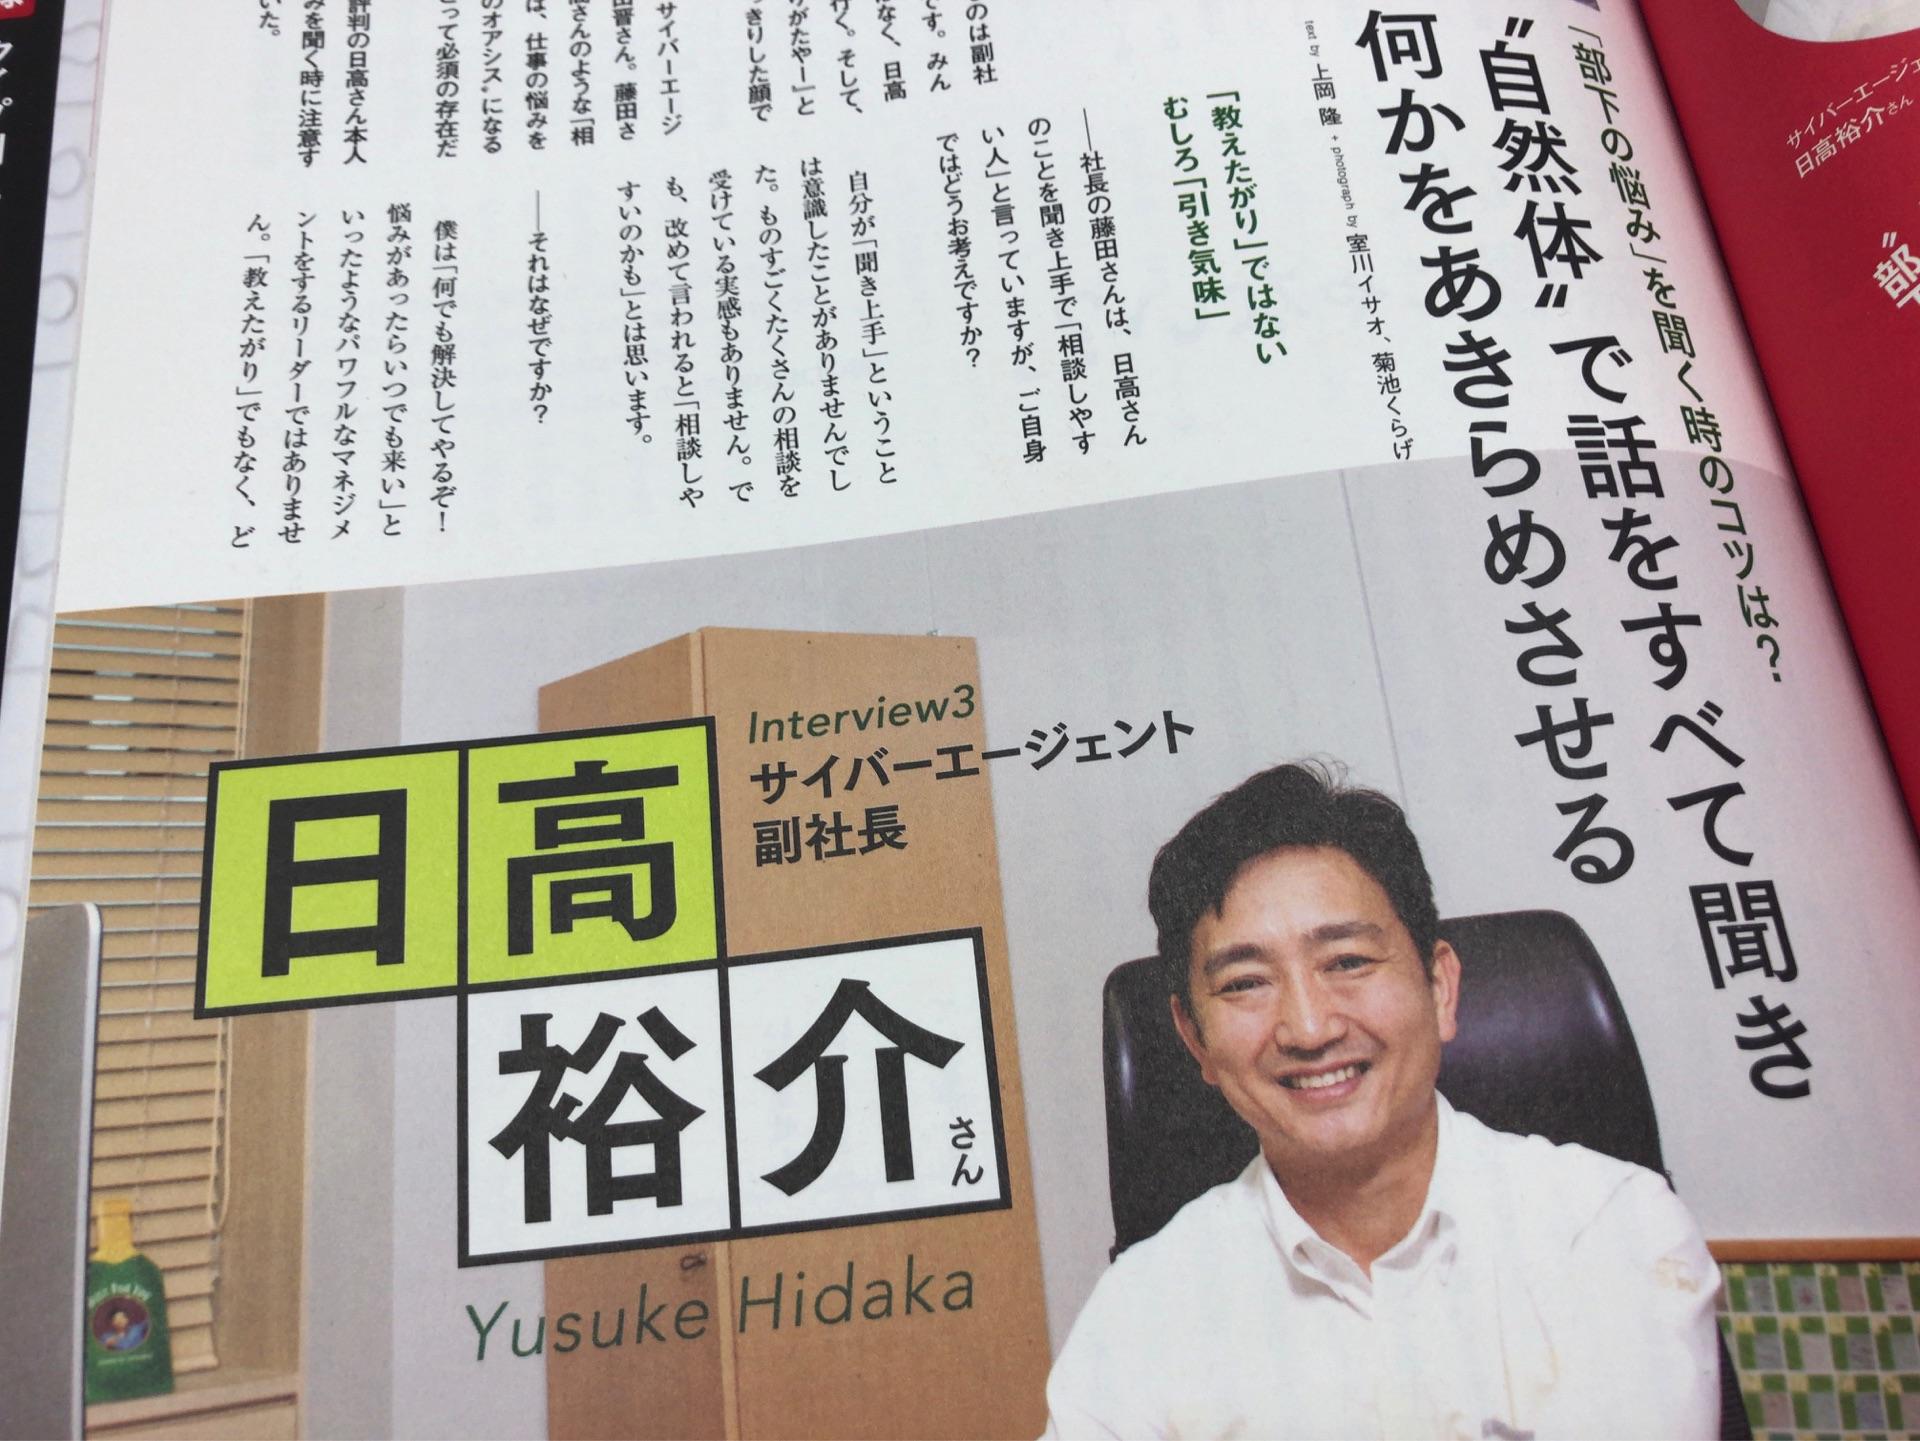 「部下の悩み」を聞く時のコツは?
“自然体”で話をすべて聞き
何かをあきらめさせる
text by 上岡 隆 + photograph by 室川イサオ、菊池くらげ
「教えたがり」ではない
むしろ「引き気味」
――社長の藤田さんは、日高さん
のことを聞き上手で「相談しやす
い人」と言っていますが、ご自身
ではどうお考えですか?
自分が「聞き上手」ということ
は意識したことがありませんでし
た。ものすごくたくさんの相談を
受けている実感もありません。で
も、改めて言われると「相談しや
すいのかも」とは思います。
――それはなぜですか?
僕は「何でも解決してやるぞ!
悩みがあったらいつでも来い」と
いったようなパワフルなマネジメ
ントをするリーダーではありませ
ん。「教えたがり」でもなく、ど
のは副社
です。みん
はなく、日高
行く。そして、
がたやー」と
っきりした顔で
サイバーエージ
田晋さん。藤田さ
高さんのような「相
は、仕事の悩みを
のオアシス”になる
とって必須の存在だ
評判の日高さん本人
みを聞く時に注意す
いた。
Interview3
サイバーエージェント
副社長
日高
裕介さん
Yusuke Hidaka
サイバーエージェ
日高裕介さん
“部下